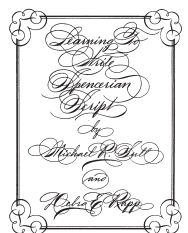 Learning To
Write
Spencerian
Script
by
Michael R. Sull
and
Debra E. Rapp